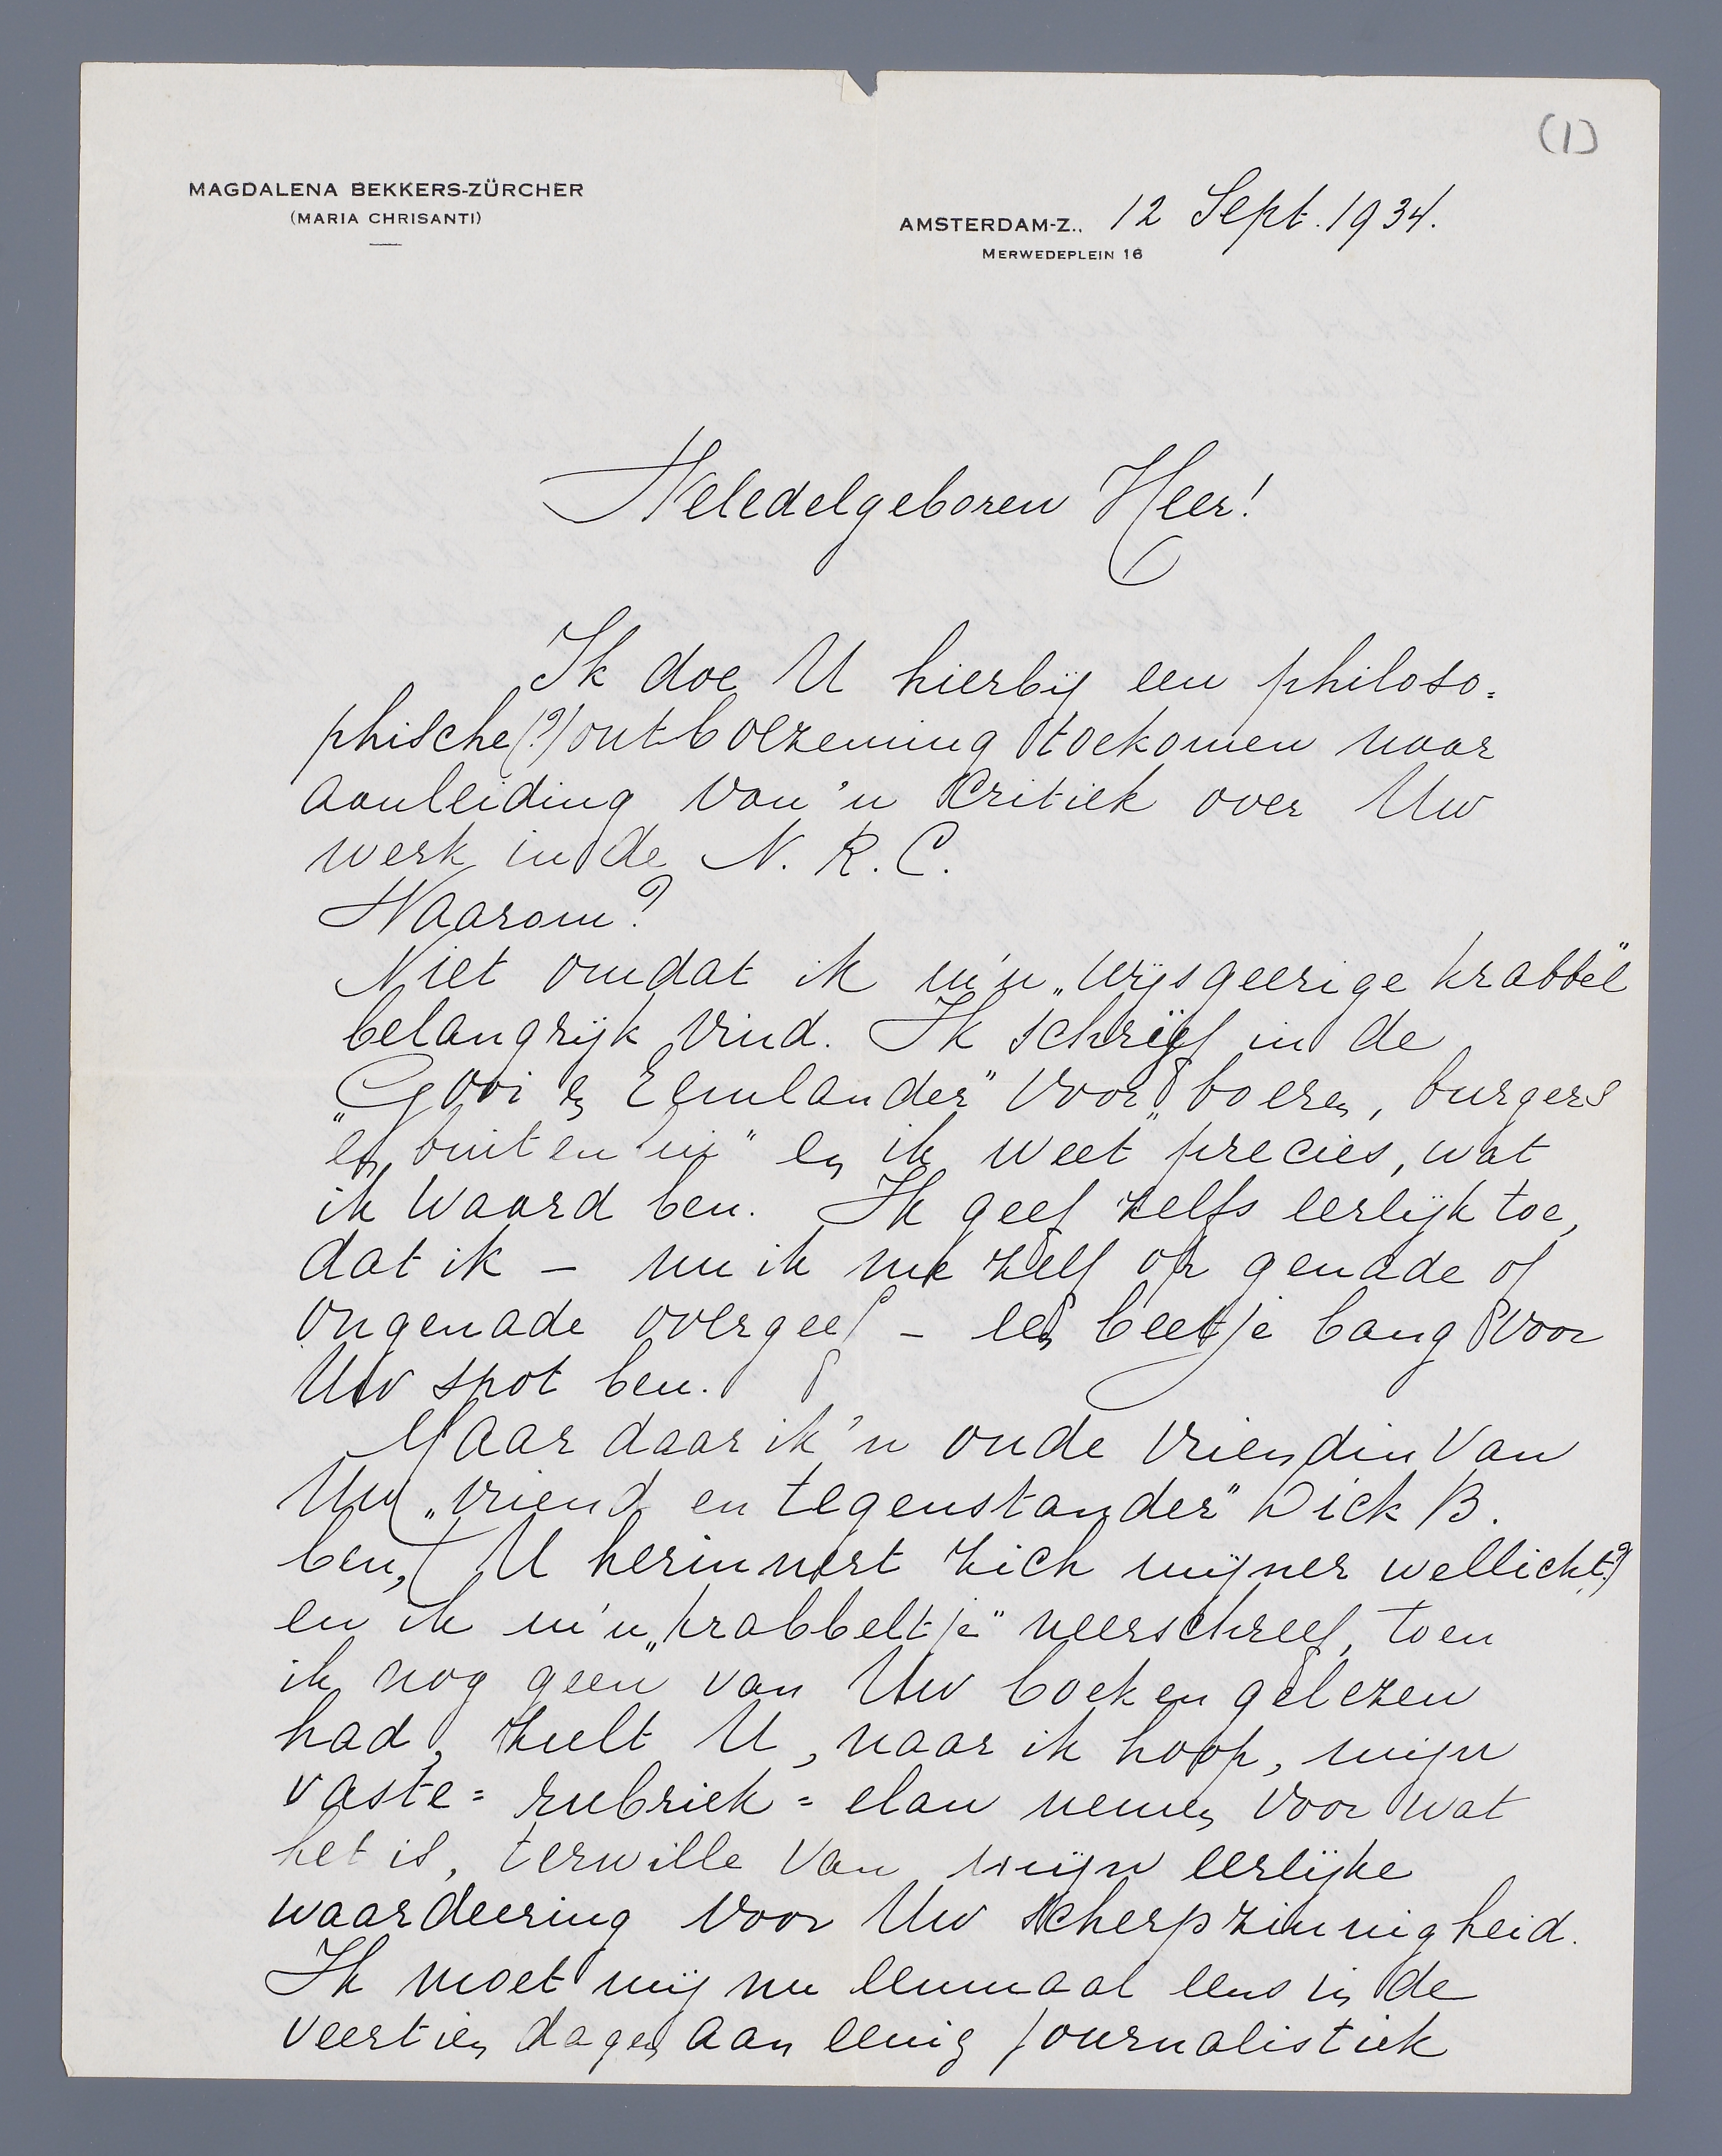 (1)
MAGDALENA BEKKERS-ZÜRCHER
(MARIA CHRISANTI)
AMSTERDAM-Z., 12 Sept. 1934.
MERWEDEPLEIN 16
Weledelgeboren Heer!
Ik doe U hierbij een philoso=
phische (?) ontboezeming toekomen naar
aanleiding van 'n critiek over Uw
werk in de N. R. C.
Waarom?
Niet omdat ik m'n „wijsgeerige krabbel"
belangrijk vind. Ik schrijf in de
„Gooi en Eemlander" voor „boeren, burgers
en buitenlui" en ik weet precies, wat
ik waard ben. Ik geef zelfs eerlijk toe,
dat ik – nu ik me zelf op genade of
ongenade overgeef – een beetje bang voor
Uw spot ben.
Maar daar ik 'n oude vriendin van
Uw „vriend en tegenstander" Dick B.
ben, (U herinnert zich mijner wellicht?)
en ik m'n „krabbeltje" neerschreef, toen
ik nog geen van Uw boeken gelezen
had, zult U, naar ik hoop, mijn
vaste=rubriek=elan nemen voor wat
het is, terwille van mijn eerlijke
waardeering voor Uw scherpzinnigheid.
Ik moet mij nu eenmaal eens in de
veertien dagen aan eenig journalistiek